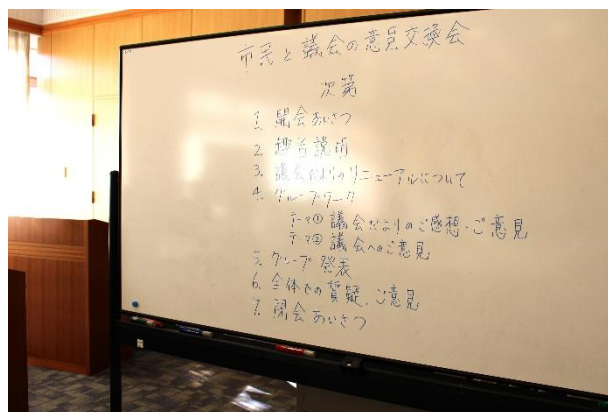 市民と議会の意見交換会
次第
1. 開会あいさつ
2. 趣旨説明
3. 議会だよりのリニューアルについて
4. グループワーク
テーマ① 議会だよりのご感想・ご意見
テーマ② 議会へのご意見
5. グループ発表
6. 全体での質疑、ご意見
7. 閉会あいさつ